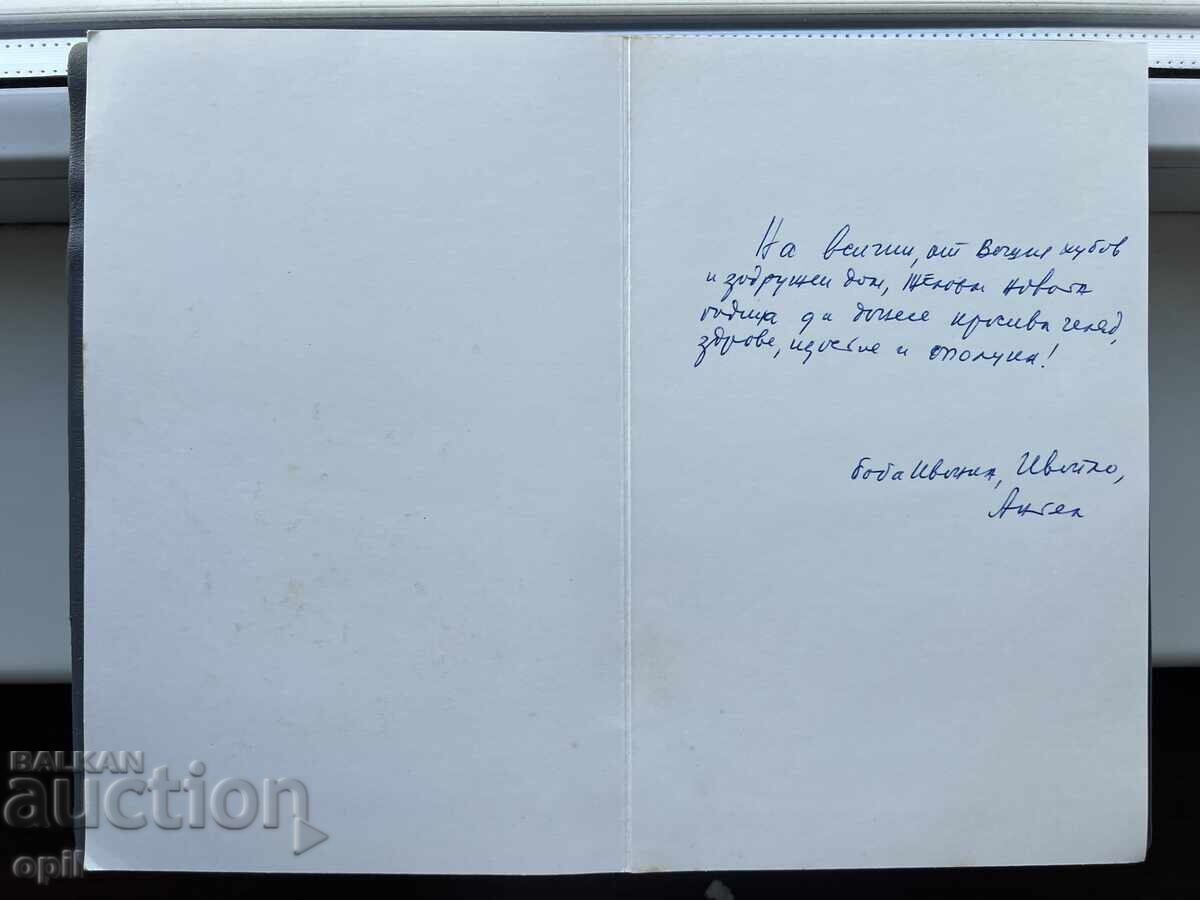 На всички, от Вашия хубав
и задружен дом, желаем новата
година да донесе красива челяд,
здраве, щастие и сполука!
баба Иванка, Ивайло,
Ангел
BALKAN
auction
opil